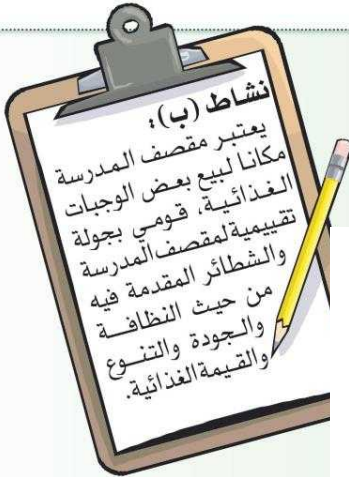 نشاط (ب):
يعتبر مقصف المدرسة
مكانا لبيع بعض الوجبات
الغذائية، قومي بجولة
تقييمية لمقصف المدرسة
والشطائر المقدمة فيه
من حيث النظافة
والجودة والتنوع
والقيمة الغذائية.